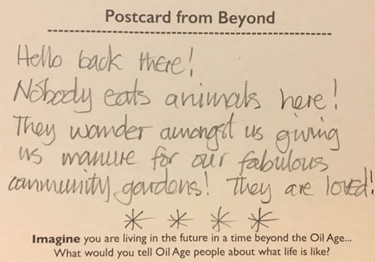 Postcard from Beyond
Hello back there!
Nobody eats animals here!
They wander amongst us giving
us manure for our fabulous
community gardens! They are loved!
Imagine you are living in the future in a time beyond the Oil Age...
What would you tell Oil Age people about what life is like?